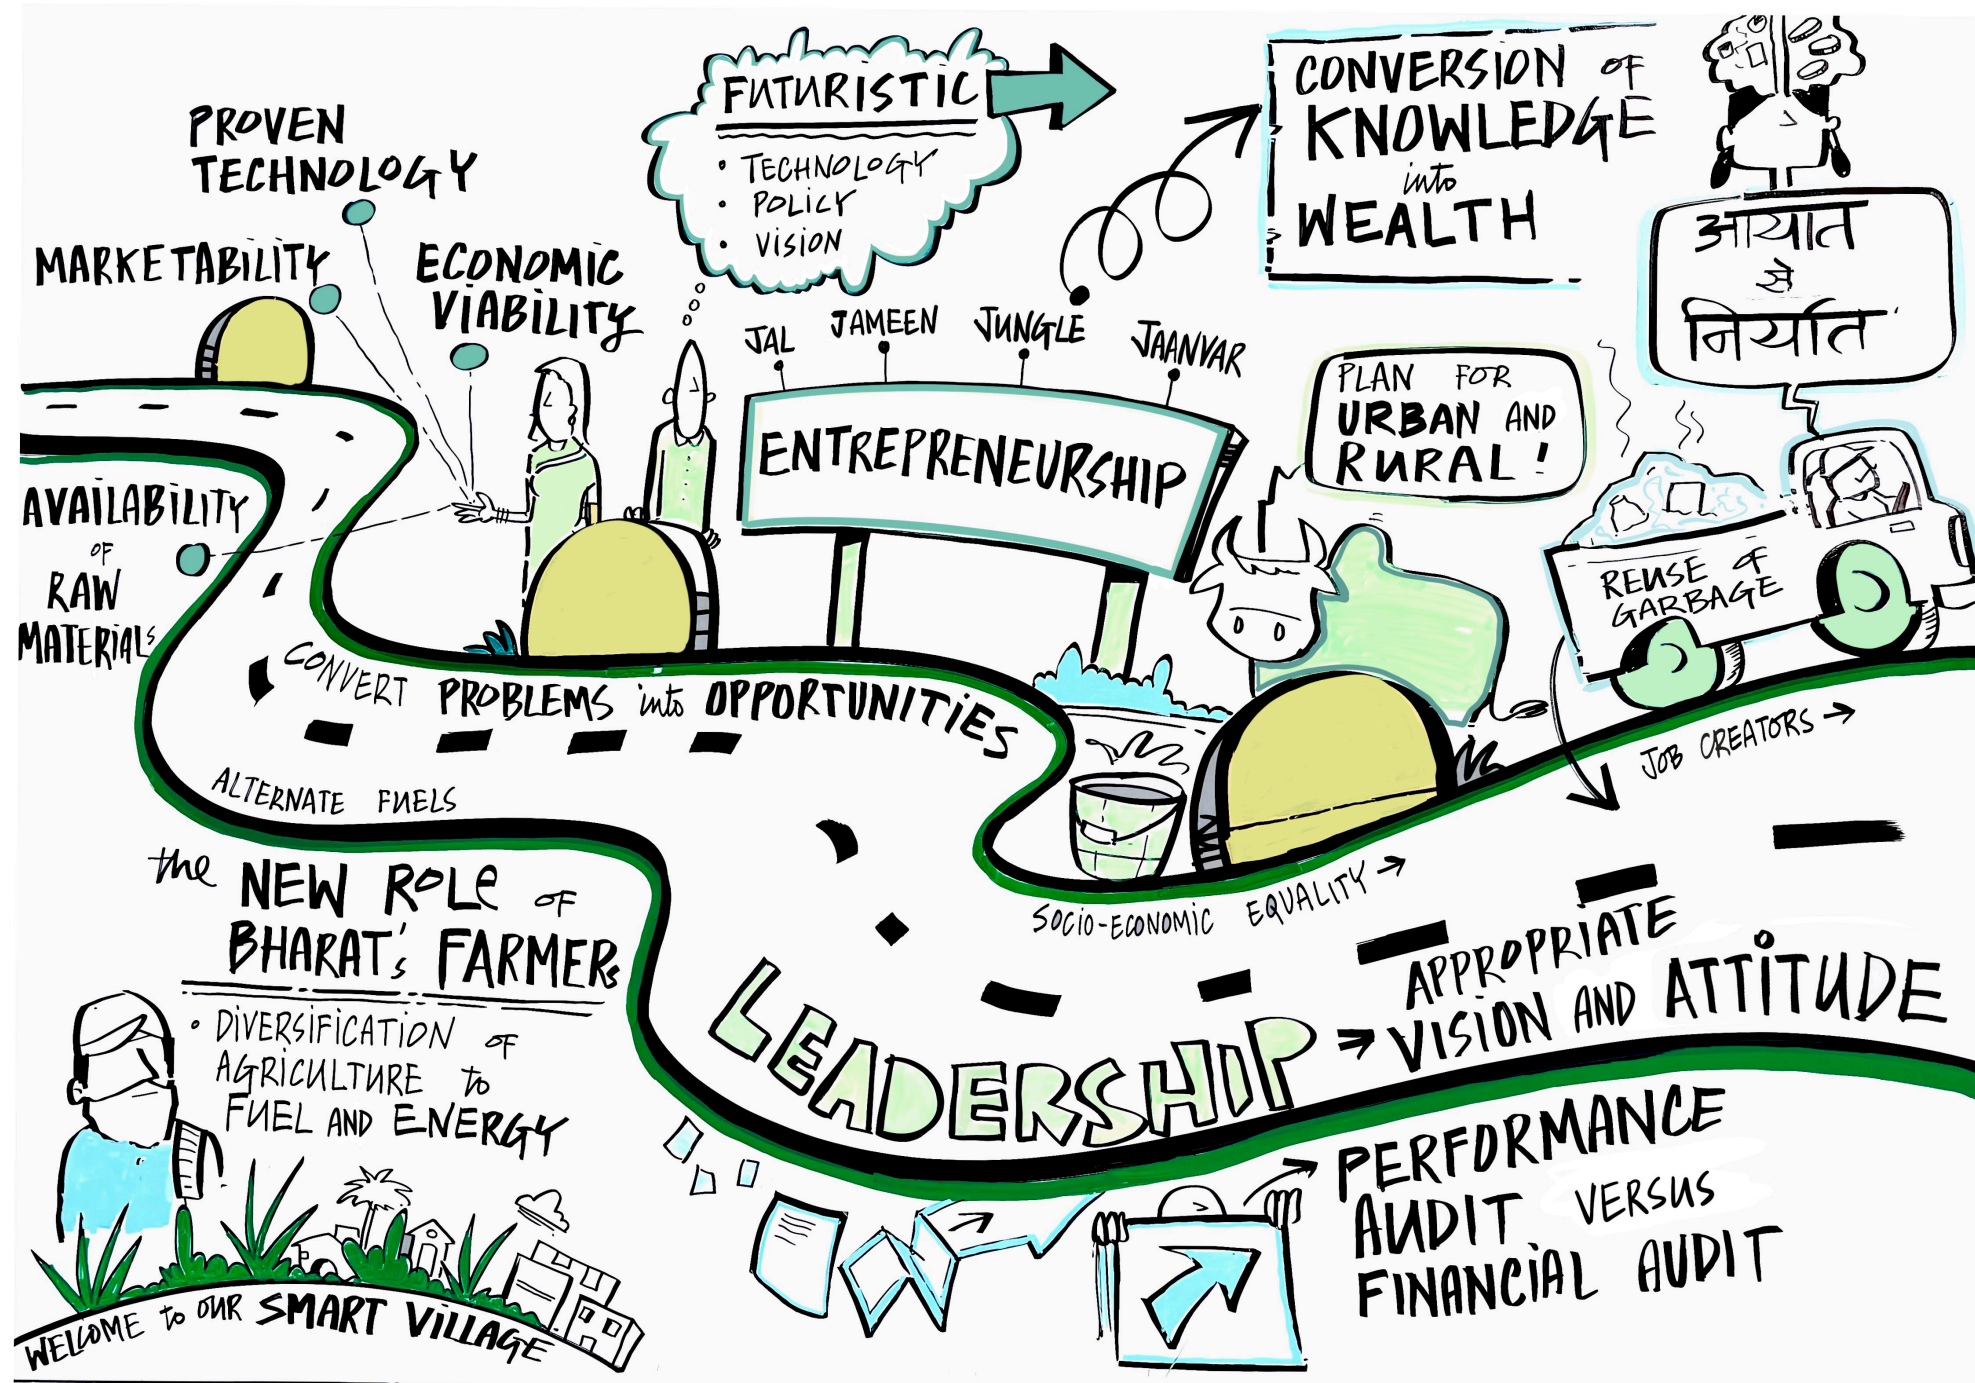 PROVEN
TECHNOLOGY
MARKETABILITY
ECONOMIC
VIABILITY
AVAILABILITY
OF
RAW
MATERIALS
FUTURISTIC
• TECHNOLOGY
• POLICY
• VISION
CONVERSION OF
KNOWLEDGE
into
WEALTH
आयात
से
निर्यात
JAL
JAMEEN
JUNGLE
JAANVAR
ENTREPRENEURSHIP
PLAN FOR
URBAN AND
RURAL!
REUSE OF
GARBAGE
CONVERT PROBLEMS into OPPORTUNITIES
ALTERNATE FUELS
JOB CREATORS →
SOCIO-ECONOMIC EQUALITY →
the NEW ROLE OF
BHARAT's FARMERs
• DIVERSIFICATION OF
AGRICULTURE to
FUEL AND ENERGY
LEADERSHIP → APPROPRIATE
VISION AND ATTITUDE
PERFORMANCE
AUDIT VERSUS
FINANCIAL AUDIT
WELCOME to OUR SMART VILLAGE